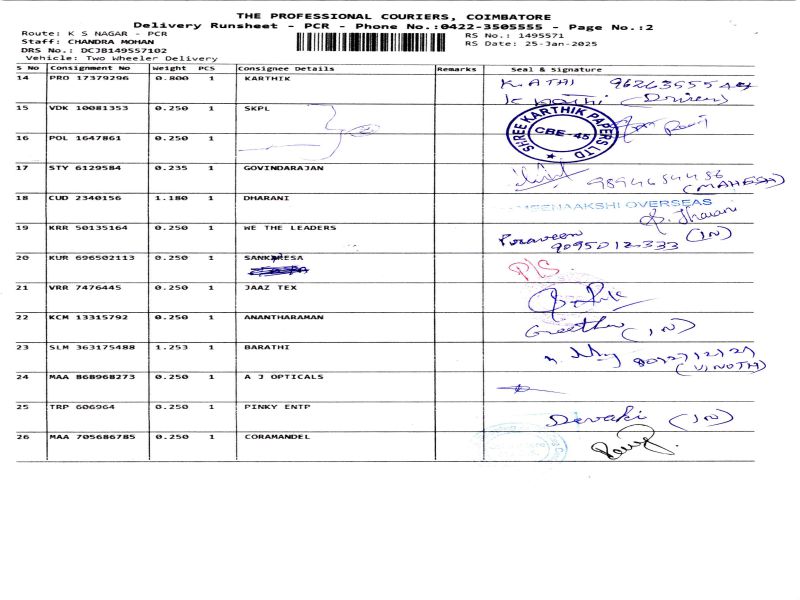 THE PROFESSIONAL COURIERS, COIMBATORE
Delivery Runsheet - PCR - Phone No.:0422-3505555 - Page No.:2
Route: K S NAGAR - PCR RS No.: 1495571
Staff: CHANDRA MOHAN RS Date: 25-Jan-2025
DRS No.: DCJB149557102
Vehicle: Two Wheeler Delivery
S No Consignment No Weight PCS Consignee Details Remarks Seal & Signature
14 PRO 17379296 0.800 1 KARTHIK
(Driver)
15 VDK 10081353 0.250 1 SKPL SHREE KARTHIK PAPERS LTD
CBE-45
16 POL 1647861 0.250 1
17 STY 6129584 0.235 1 GOVINDARAJAN 9894654456
(MAHESH)
18 CUD 2340156 1.180 1 DHARANI MEENAAKSHI OVERSEAS
19 KRR 50135164 0.250 1 WE THE LEADERS Praveen (IN)
9095012333
20 KUR 696502113 0.250 1 P/S
21 VRR 7476445 0.250 1 JAAZ TEX
22 KCM 13315792 0.250 1 ANANTHARAMAN Geetha (IN)
23 SLM 363175488 1.253 1 BARATHI
(VINOTH)
24 MAA 868968273 0.250 1 A J OPTICALS
25 TRP 606964 0.250 1 PINKY ENTP Devaki (IN)
26 MAA 705686785 0.250 1 CORAMANDEL